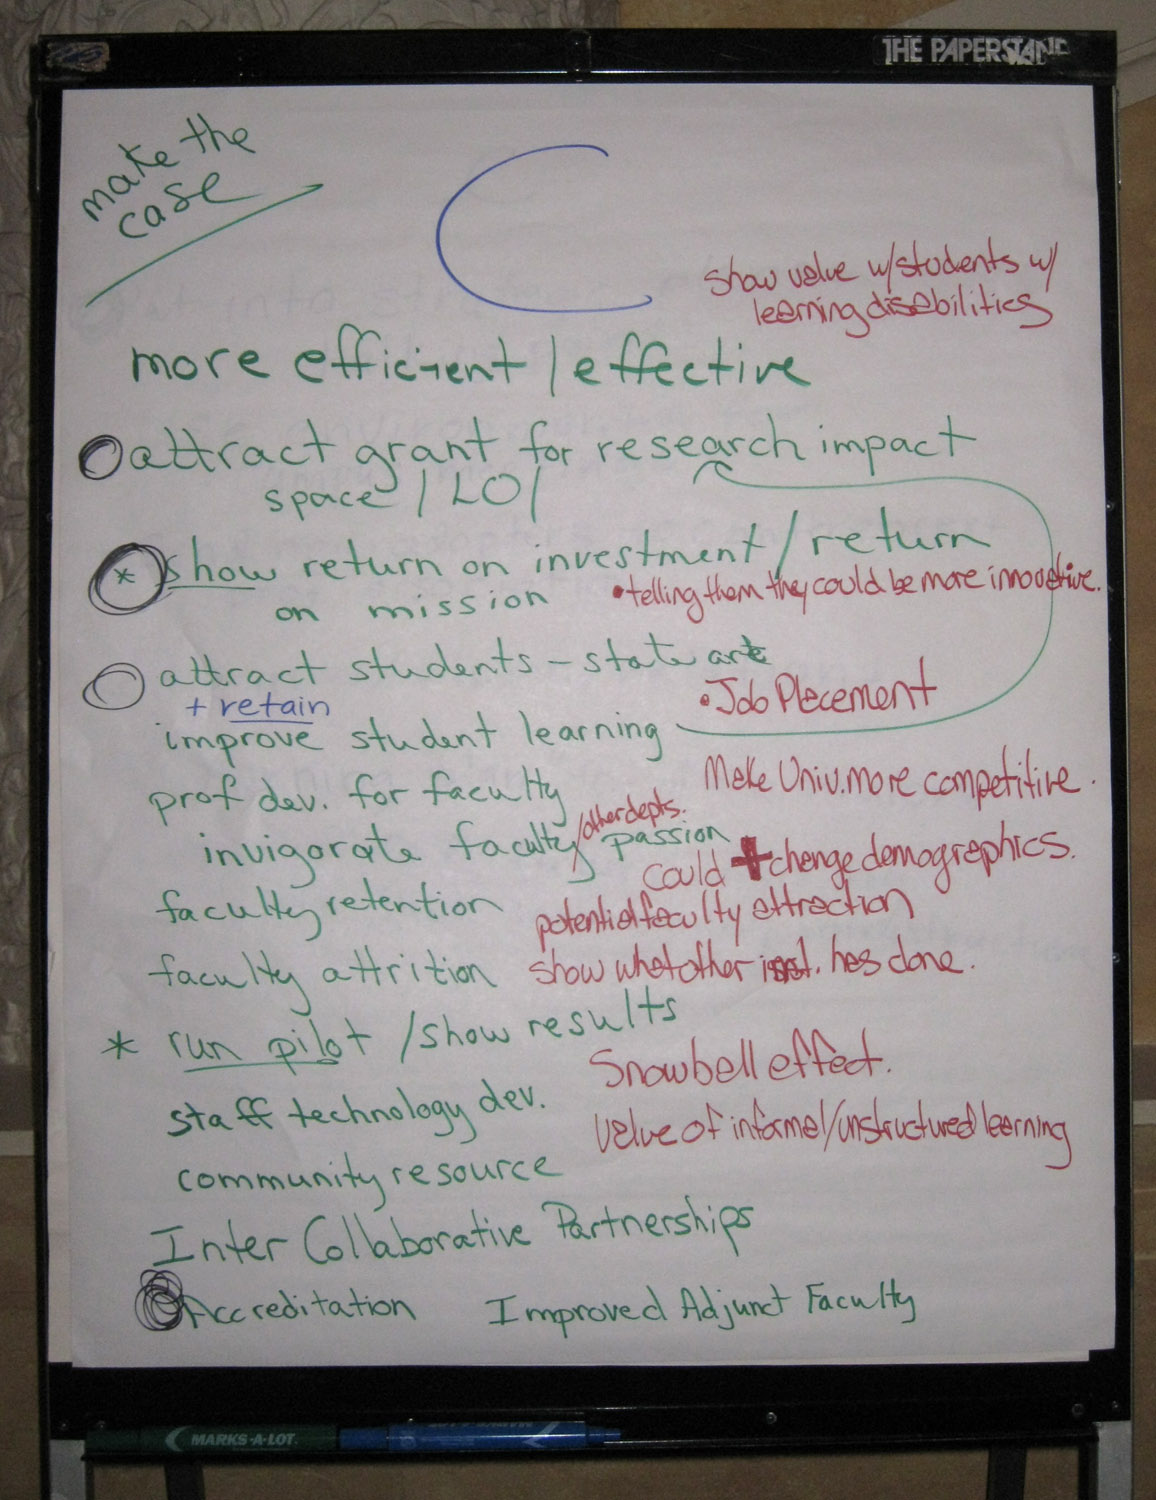 THE PAPERSTAND
make the
case
show value w/students w/
learning disabilities
more efficient / effective
attract grant for research impact
space / LO /
* show return on investment / return
on mission
• telling them they could be more innovative.
attract students - state art
+ retain
• Job Placement
improve student learning
Make Univ. more competitive.
prof dev. for faculty
/other depts.
invigorate faculty passion
could + change demographics.
faculty retention
potential faculty attraction
faculty attrition
show what other inst. has done.
* run pilot / show results
Snowball effect.
staff technology dev.
value of informal/unstructured learning
community resource
Inter Collaborative Partnerships
Accreditation
Improved Adjunct Faculty
MARKS-A-LOT